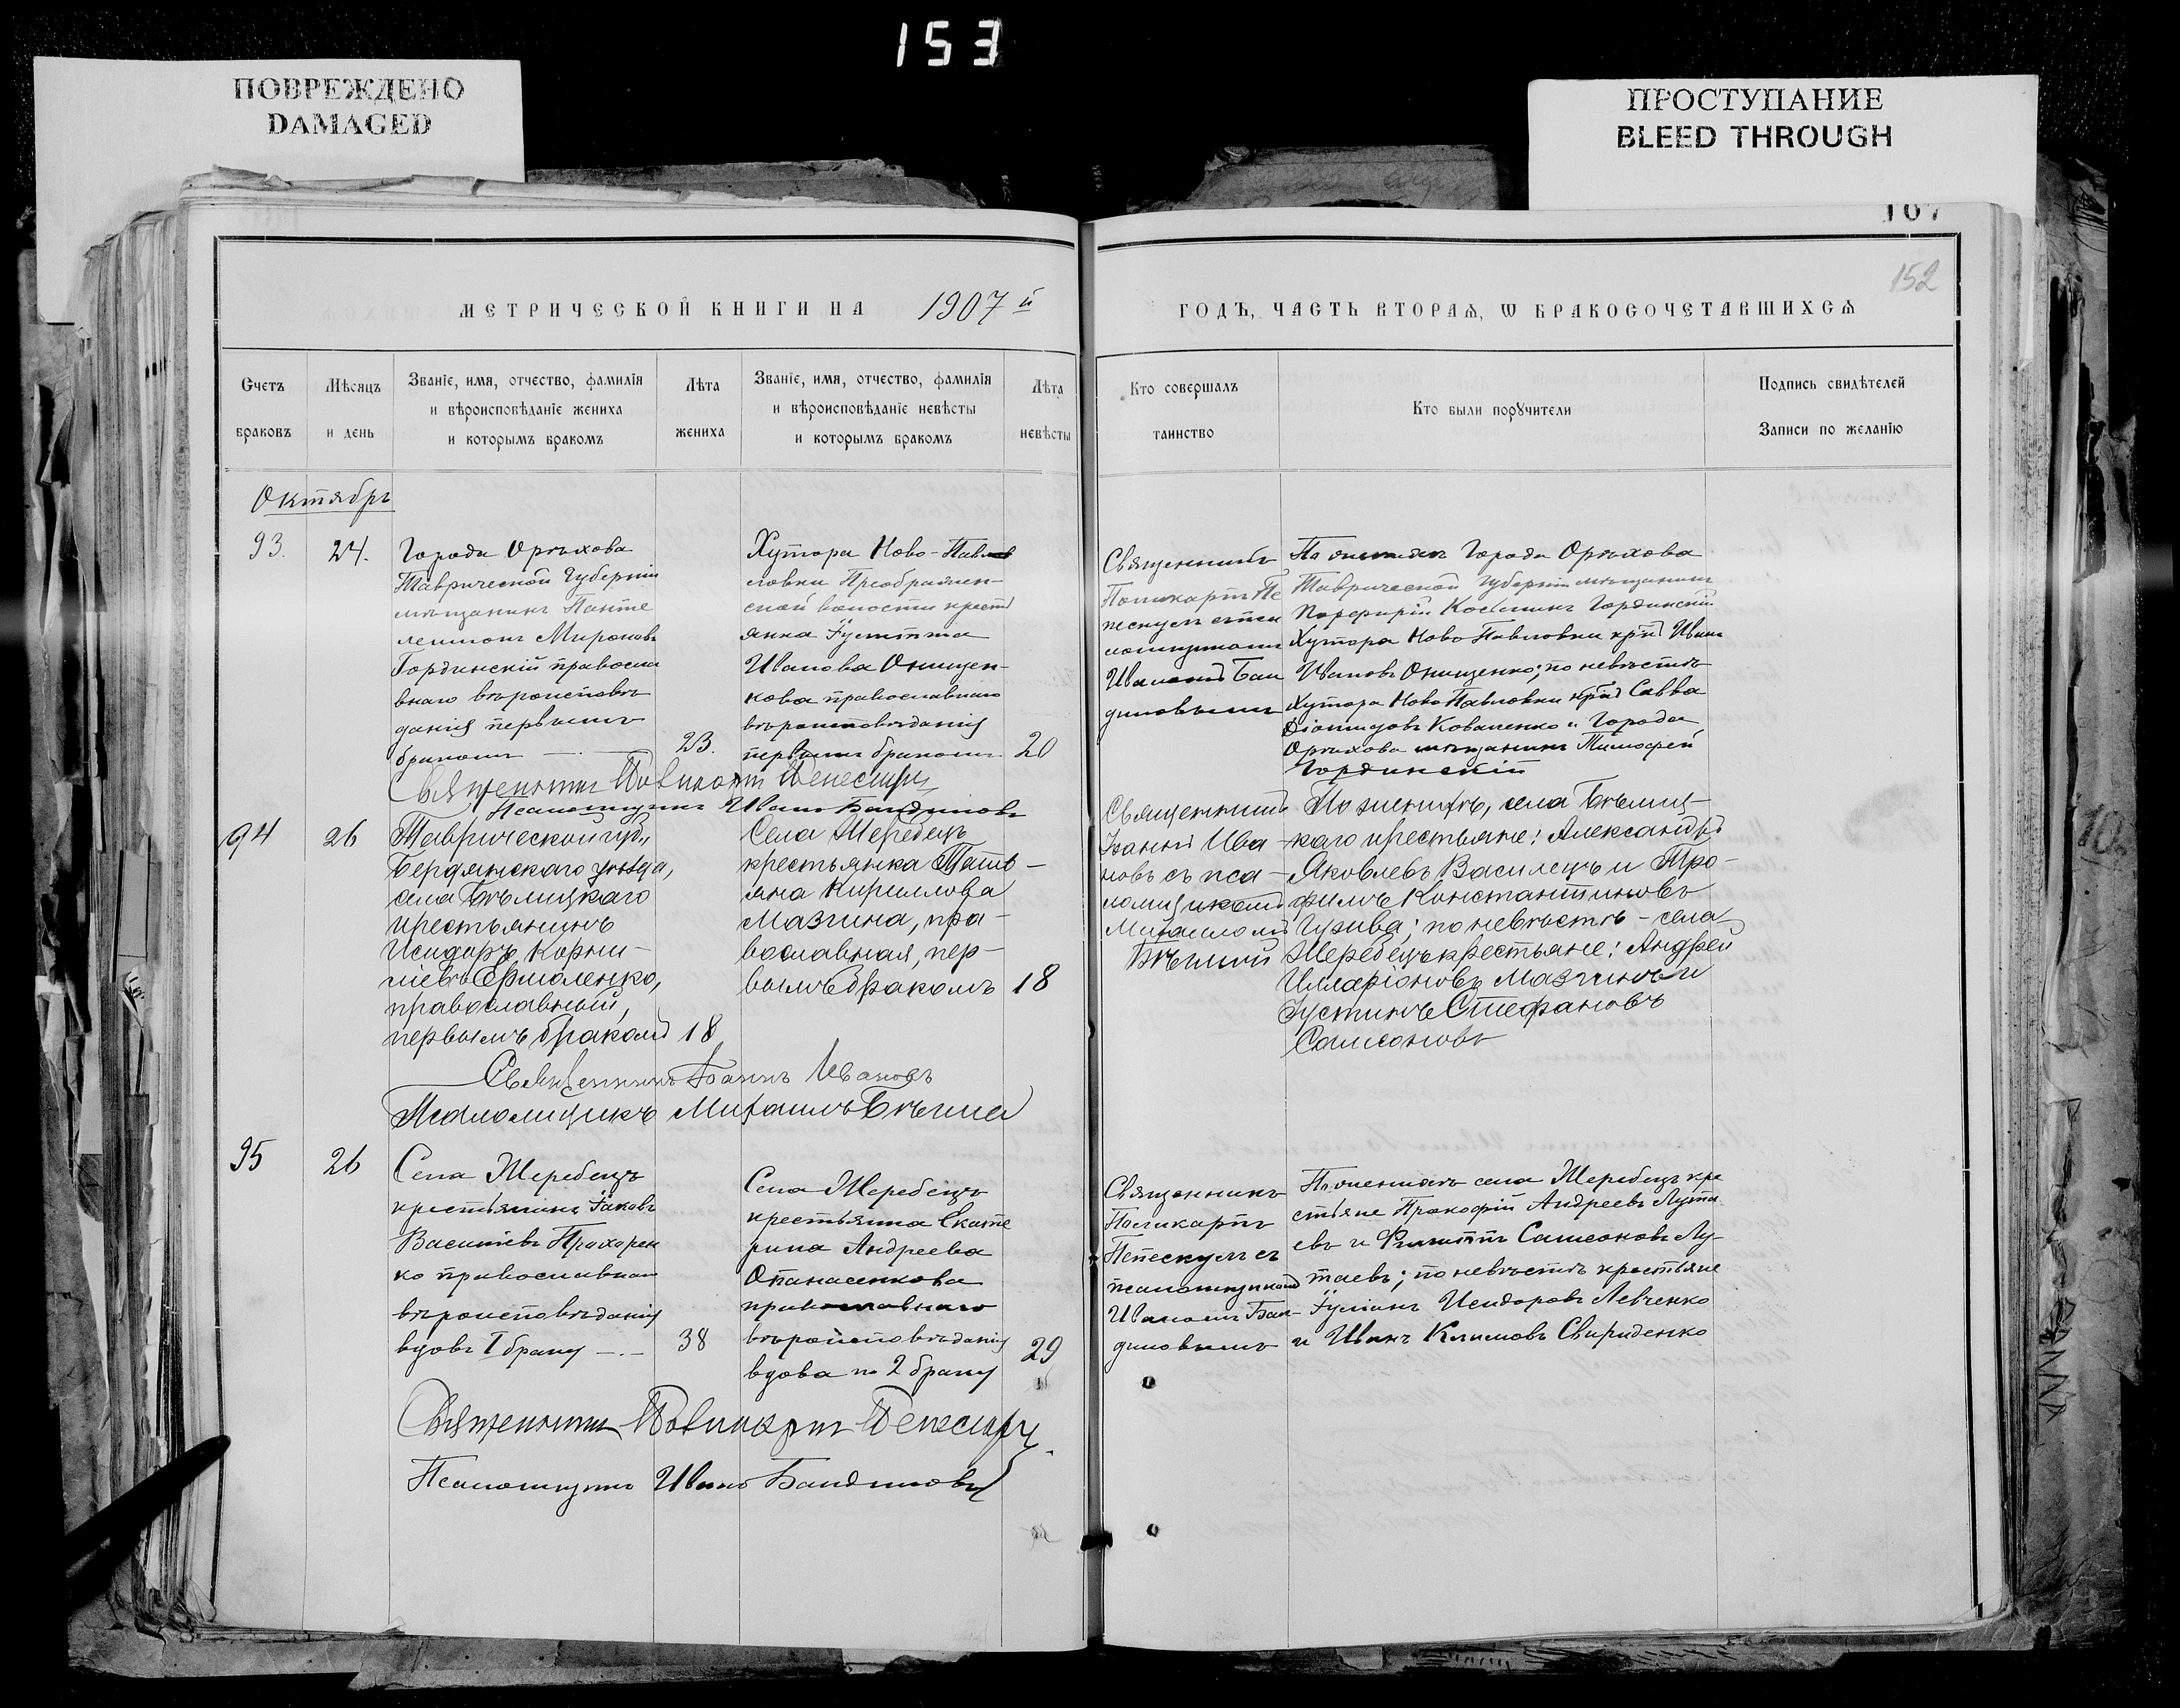 153
ПОВРЕЖДЕНО
DAMAGED
ПРОСТУПАНИЕ
BLEED THROUGH
167
152
МЕТРИЧЕСКОЙ КНИГИ НА 1907 й
ГОДЪ, ЧАСТЬ ВТОРАѦ, Ѡ БРАКОСОЧЕТАВШИХСѦ
Счетъ
браковъ
Мѣсяцъ
и день
Званіе, имя, отчество, фамилія
и вѣроисповѣданіе жениха
и которымъ бракомъ
Лѣта
жениха
Званіе, имя, отчество, фамилія
и вѣроисповѣданіе невѣсты
и которымъ бракомъ
Лѣта
невѣсты
Кто совершалъ
таинство
Кто были порꙋчители
Подпись свидѣтелей
Записи по желанію
Октябрь
93.
24.
Города Орѣхова
Таврической Губерніи
мѣщанинъ Панте
леимонъ Мироновъ
Гординскій правосла
внаго вѣроисповѣ
данія первымъ
бракомъ
23.
Хутора Ново-Павло
ловки Преображен-
ской волости кресть
янка Іулитта
Иванова Онищен-
кова православнаго
вѣроисповѣданія
первымъ бракомъ
20
Священникъ
Поликарпъ Пе
пескулъ съ пса
ломщикомъ
Иваномъ Бан
диловымъ
По женихѣ Города Орѣхова
Таврической Губерніи мѣщанинъ
Порфирій Косминъ Гординскій
Хутора Ново Павловки кр-нъ Иванъ
Ивановъ Онищенко; по невѣстѣ
Хутора Ново Павловки кр-нъ Савва
Діомидовъ Коваленко и Города
Орѣхова мѣщанинъ Тимофей
Гординскій
Священникъ Поликарпъ Пепескулъ
Псаломщикъ Иванъ Бандиловъ
94
26
Таврической губ.,
Бердянскаго уѣзда,
села Бѣлицкаго
крестьянинъ
Исидоръ Корни-
ліевъ Ермоленко,
православный,
первымъ бракомъ
18
Села Жеребецъ
крестьянка Тать-
яна Кириллова
Мазгина, пра-
вославная, пер-
вымъ бракомъ
18
Священникъ
Іоаннъ Ива-
новъ съ пса-
ломщикомъ
Михаиломъ
Бѣлшой
По женихѣ, села Бѣлиц-
каго крестьяне: Александръ
Яковлевъ Василецъ и Тро-
фимъ Константиновъ
Гузива; по невѣстѣ - села
Жеребецъ крестьяне: Андрей
Илларіоновъ Мазгинъ и
Іустинъ Стефановъ
Самсоновъ
Священникъ Іоаннъ Ивановъ
Псаломщикъ Михаилъ
95
26
Села Жеребецъ
крестьянинъ Іаковъ
Василіевъ Прохорен
ко православнаго
вѣроисповѣданія
вдовъ I браку
38
Села Жеребецъ
крестьянка Екате
рина Андреева
Опанасенкова
православнаго
вѣроисповѣданія
вдова по 2 браку
29
Священникъ
Поликарпъ
Пепескулъ съ
псаломщикомъ
Иваномъ Бан-
диловымъ
По женихѣ села Жеребецъ кре
стьяне Прокофій Андреевъ Лута
евъ и Филиппъ Самсоновъ Лу-
таевъ; по невѣстѣ крестьяне
Іуліанъ Исидоровъ Левченко
и Иванъ Климовъ Свириденко
Священникъ Поликарпъ Пепескулъ
Псаломщикъ Иванъ Бандиловъ